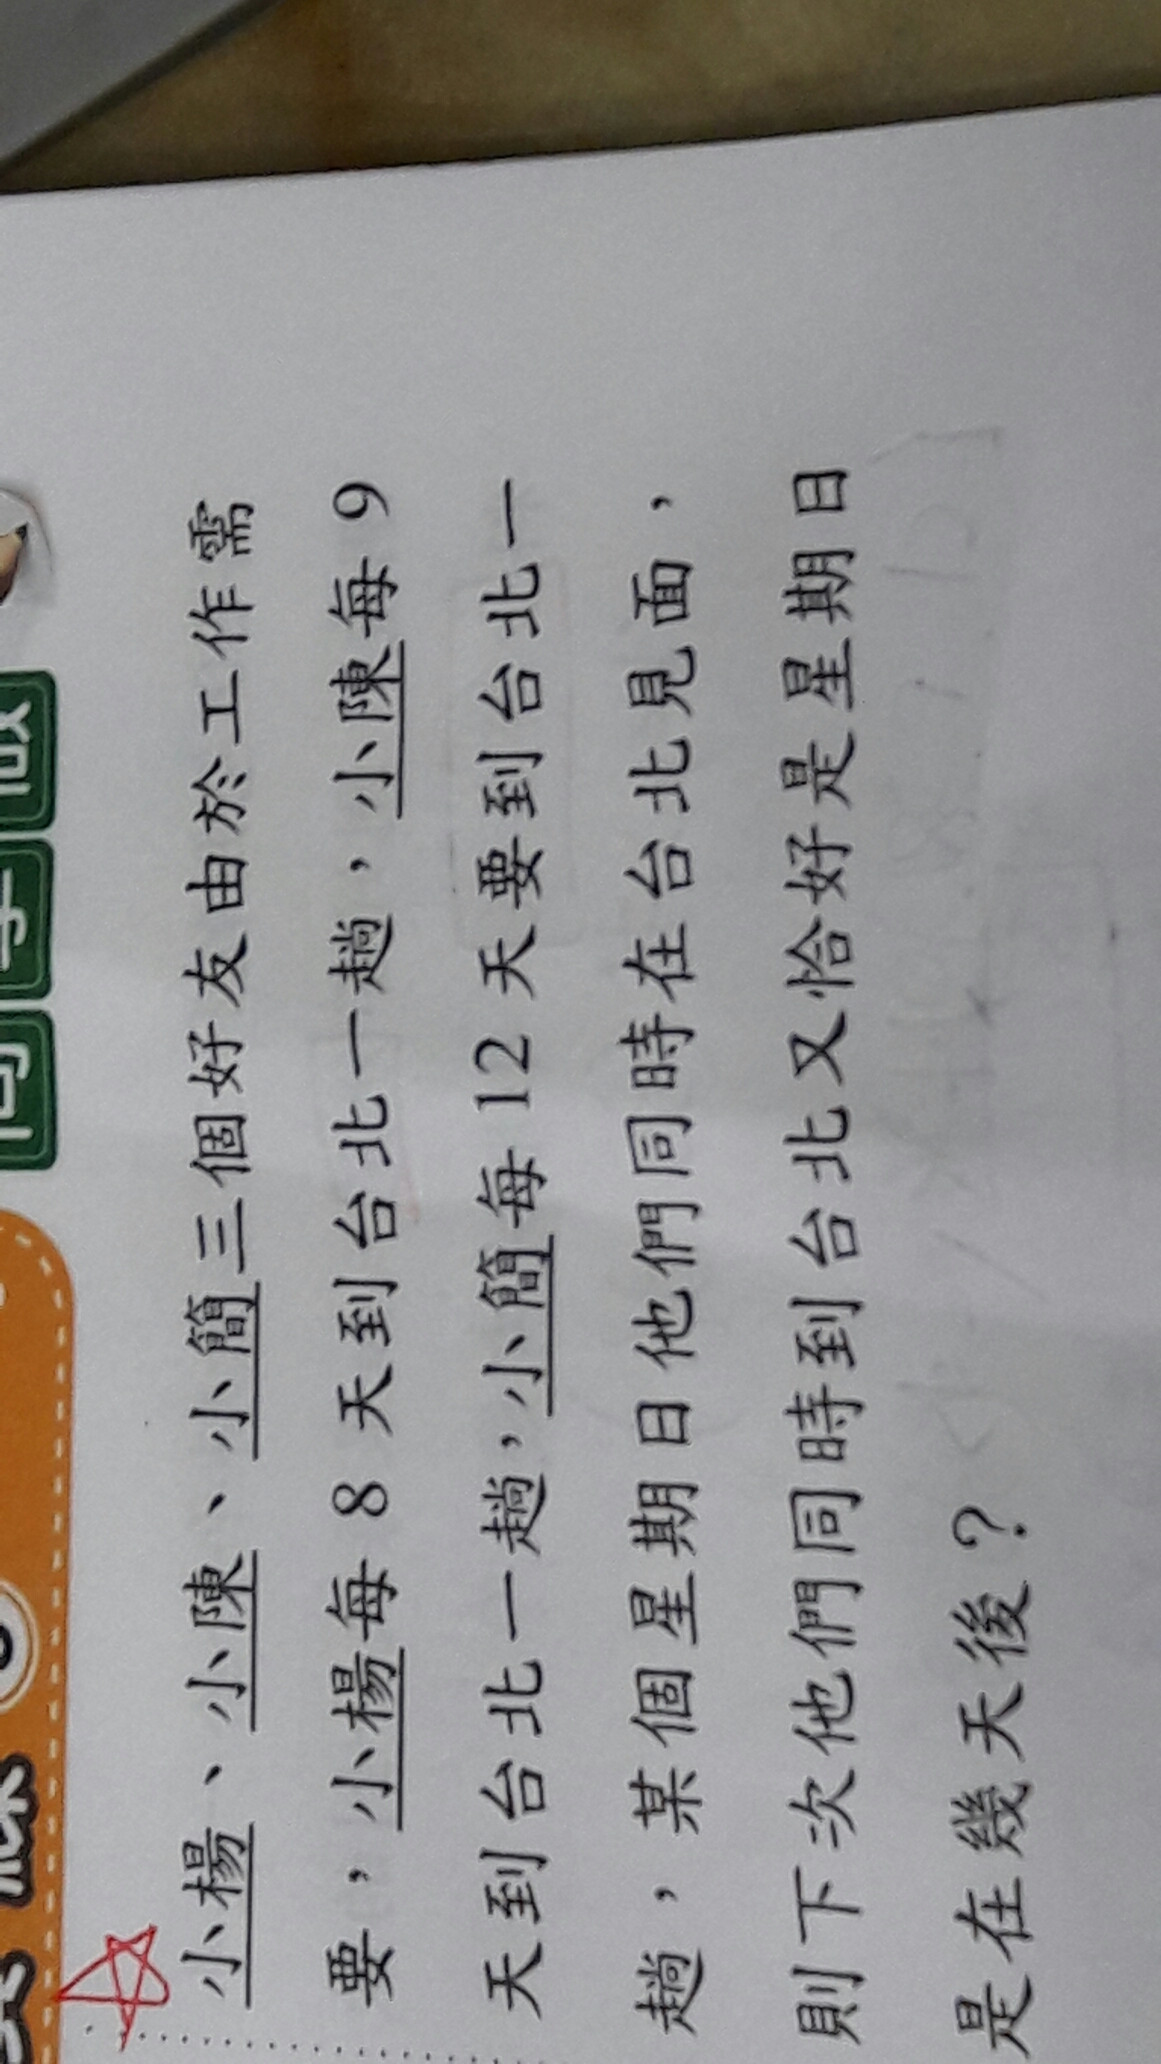 小楊、小陳、小簡三個好友由於工作需
要，小楊每 8 天到台北一趟，小陳每 9
天到台北一趟，小簡每 12 天要到台北一
趟，某個星期日他們同時在台北見面，
則下次他們同時到台北又恰好是星期日
是在幾天後？